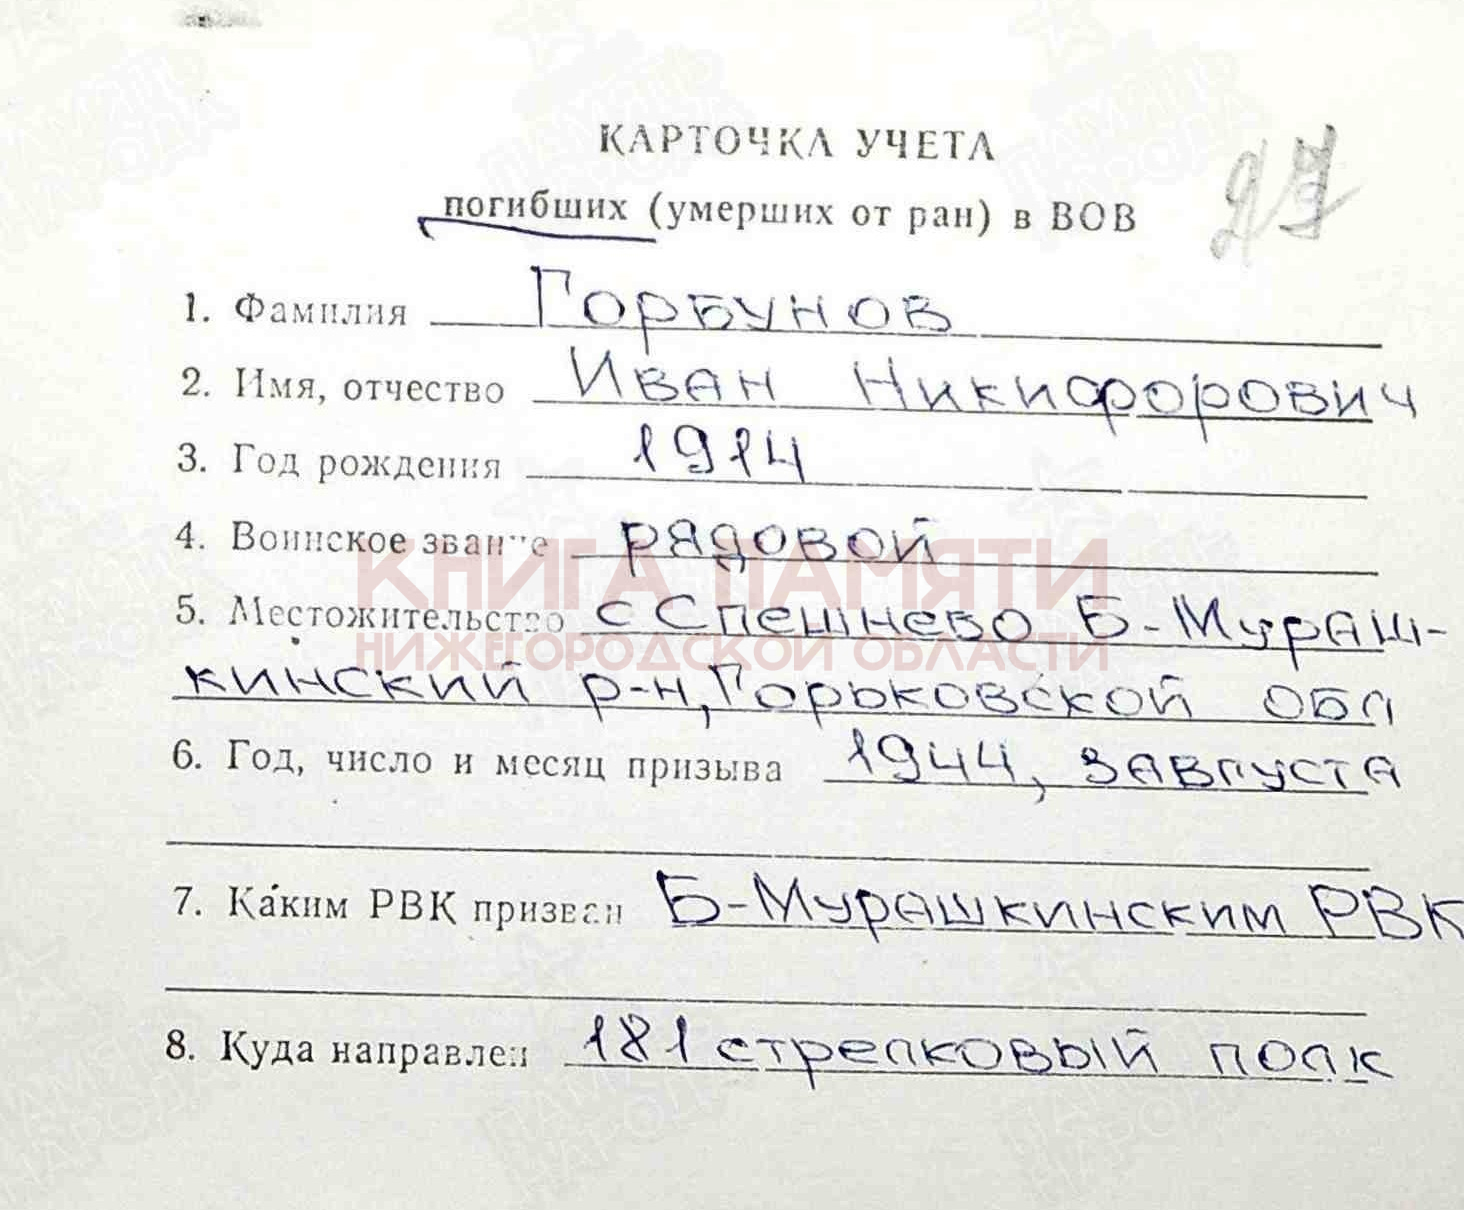 КАРТОЧКА УЧЕТА
погибших (умерших от ран) в ВОВ
1. Фамилия Горбунов
2. Имя, отчество Иван Никифорович
3. Год рождения 1914
4. Воинское звание рядовой
КНИГА ПАМЯТИ
5. Местожительство с Спешнево Б-Мураш-
НИЖЕГОРОДСКОЙ ОБЛАСТИ
кинский р-н, Горьковской обл
6. Год, число и месяц призыва 1944, 3 августа
7. Каким РВК призван Б-Мурашкинским РВК
8. Куда направлен 181 стрелковый полк